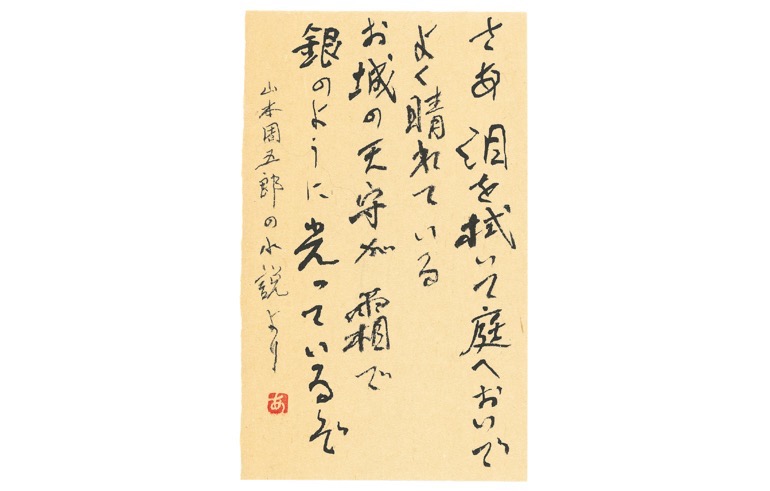 さあ 泪を拭いて庭へおいで
よく晴れている
お城の天守が 霜で
銀のように光っているぞ
山本周五郎の小説より
あ